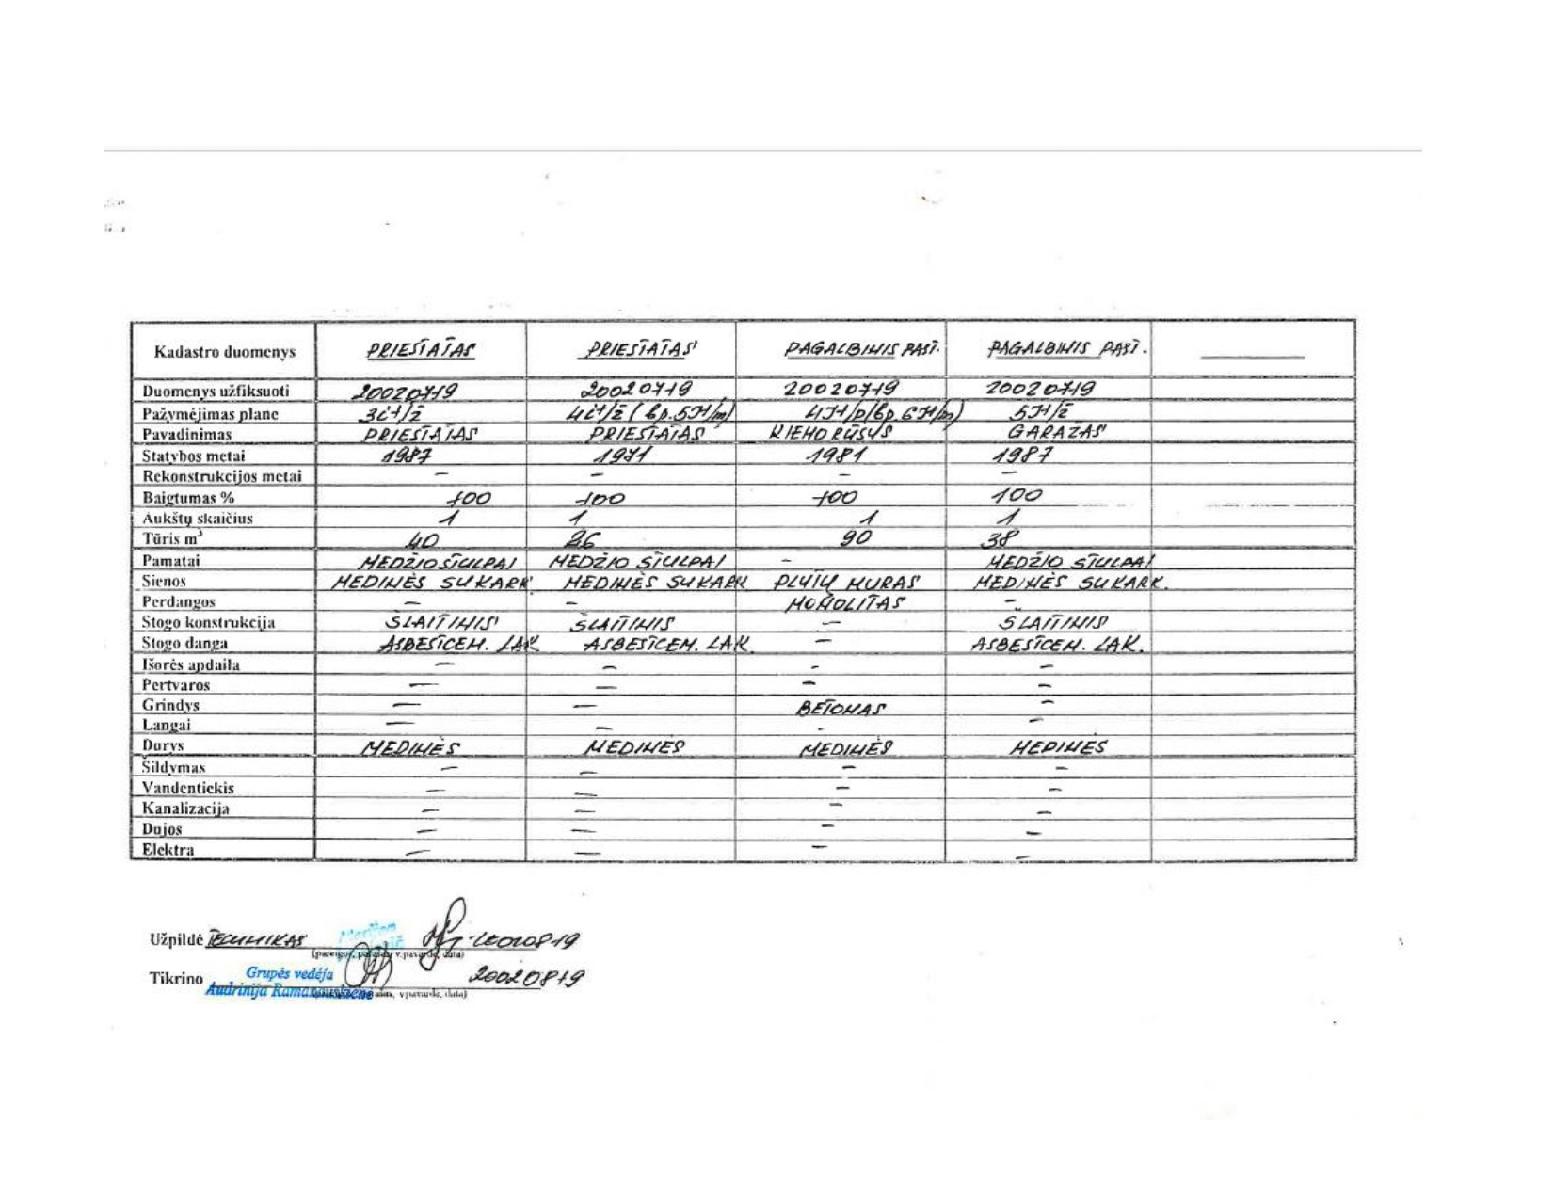 Kadastro duomenys PRIESTATAS PRIESTATAS PAGALBINIS PAST. PAGALBINIS PAST.
Duomenys užfiksuoti 20020719 20020719 20020719 20020719
Pažymėjimas plane 5I1/ž
Pavadinimas PRIESTATAS PRIESTATAS KIEMO RŪSYS GARAŽAS
Statybos metai 1987 1971 1981 1987
Rekonstrukcijos metai – – – –
Baigtumas % 100 100 100 100
Aukštų skaičius 1 1 1 1
Tūris m³ 40 26 90 38
Pamatai MEDŽIO STULPAI MEDŽIO STULPAI – MEDŽIO STULPAI
Sienos MEDINĖS SU KARK. MEDINĖS SU KARK PLYTŲ MŪRAS MEDINĖS SU KARK.
Perdangos – – MONOLITAS –
Stogo konstrukcija ŠLAITINIS ŠLAITINIS – ŠLAITINIS
Stogo danga ASBESTCEM. LAK ASBESTCEM. LAK. – ASBESTCEM. LAK.
Išorės apdaila – – – –
Pertvaros – – – –
Grindys – – BETONAS –
Langai – – – –
Durys MEDINĖS MEDINĖS MEDINĖS MEDINĖS
Šildymas – – – –
Vandentiekis – – – –
Kanalizacija – – – –
Dujos – – – –
Elektra – – – –
Užpildė TECHNIKAS 20020819
Tikrino Grupės vedėja 20020819
Audrinija